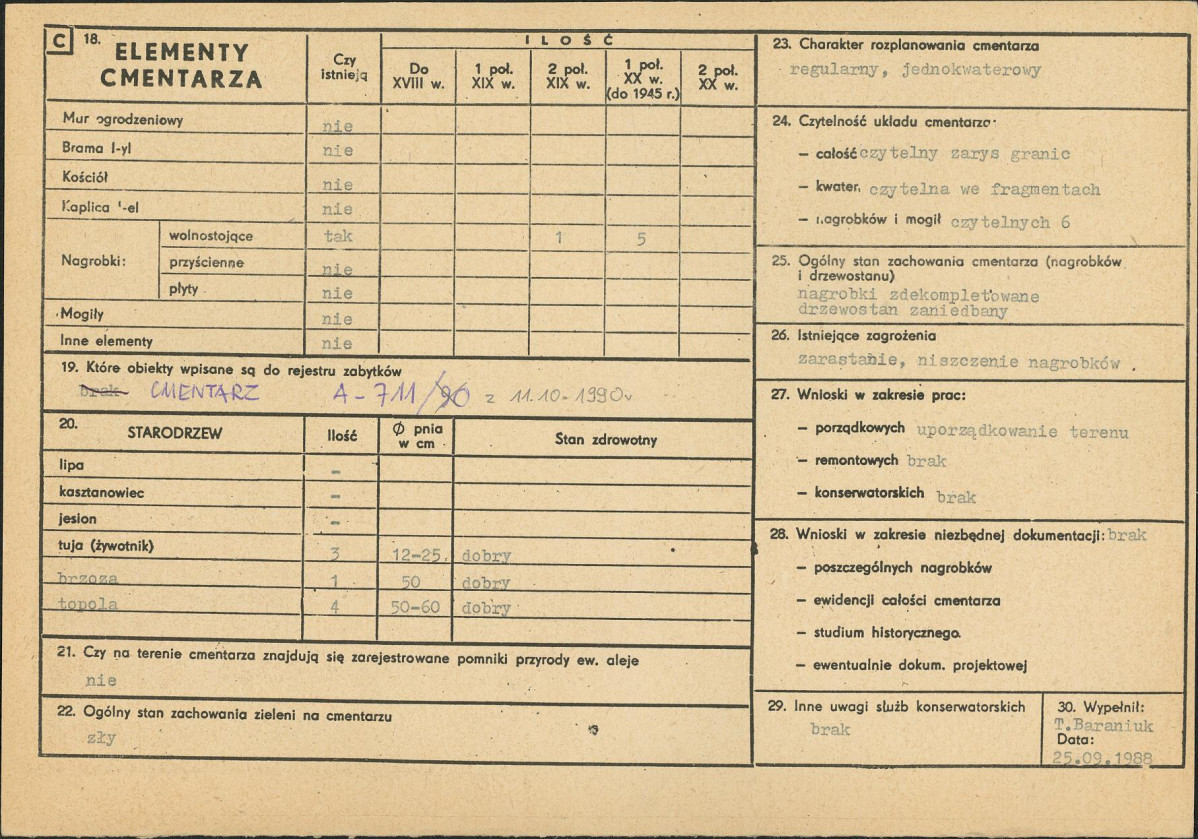 C 18. ELEMENTY
CMENTARZA
Czy
istnieją
ILOŚĆ
Do
XVIII w.
1 poł.
XIX w.
2 poł.
XIX w.
1 poł.
XX w.
(do 1945 r.)
2 poł.
XX w.
Mur ogrodzeniowy nie
Brama I-yl nie
Kościół nie
Kaplica '-el nie
Nagrobki:
wolnostojące tak 1 5
przyścienne nie
płyty nie
Mogiły nie
Inne elementy nie
19. Które obiekty wpisane są do rejestru zabytków
brak CMENTARZ A-711/90 z 11.10-1990r
20. STARODRZEW Ilość Ø pnia
w cm Stan zdrowotny
lipa -
kasztanowiec -
jesion -
tuja (żywotnik) 3 12-25 dobry
brzoza 1 50 dobry
topola 4 50-60 dobry
21. Czy na terenie cmentarza znajdują się zarejestrowane pomniki przyrody ew. aleje
nie
22. Ogólny stan zachowania zieleni na cmentarzu
zły
23. Charakter rozplanowania cmentarza
regularny, jednokwaterowy
24. Czytelność układu cmentarza·
— całość czytelny zarys granic
— kwater. czytelna we fragmentach
— nagrobków i mogił czytelnych 6
25. Ogólny stan zachowania cmentarza (nagrobków
i drzewostanu)
nagrobki zdekompletowane
drzewostan zaniedbany
26. Istniejące zagrożenia
zarastanie, niszczenie nagrobków
27. Wnioski w zakresie prac:
— porządkowych uporządkowanie terenu
— remontowych brak
— konserwatorskich brak
28. Wnioski w zakresie niezbędnej dokumentacji: brak
— poszczególnych nagrobków
— ewidencji całości cmentarza
— studium historycznego.
— ewentualnie dokum. projektowej
29. Inne uwagi służb konserwatorskich
brak
30. Wypełnił:
T.Baraniuk
Data:
25.09.1988